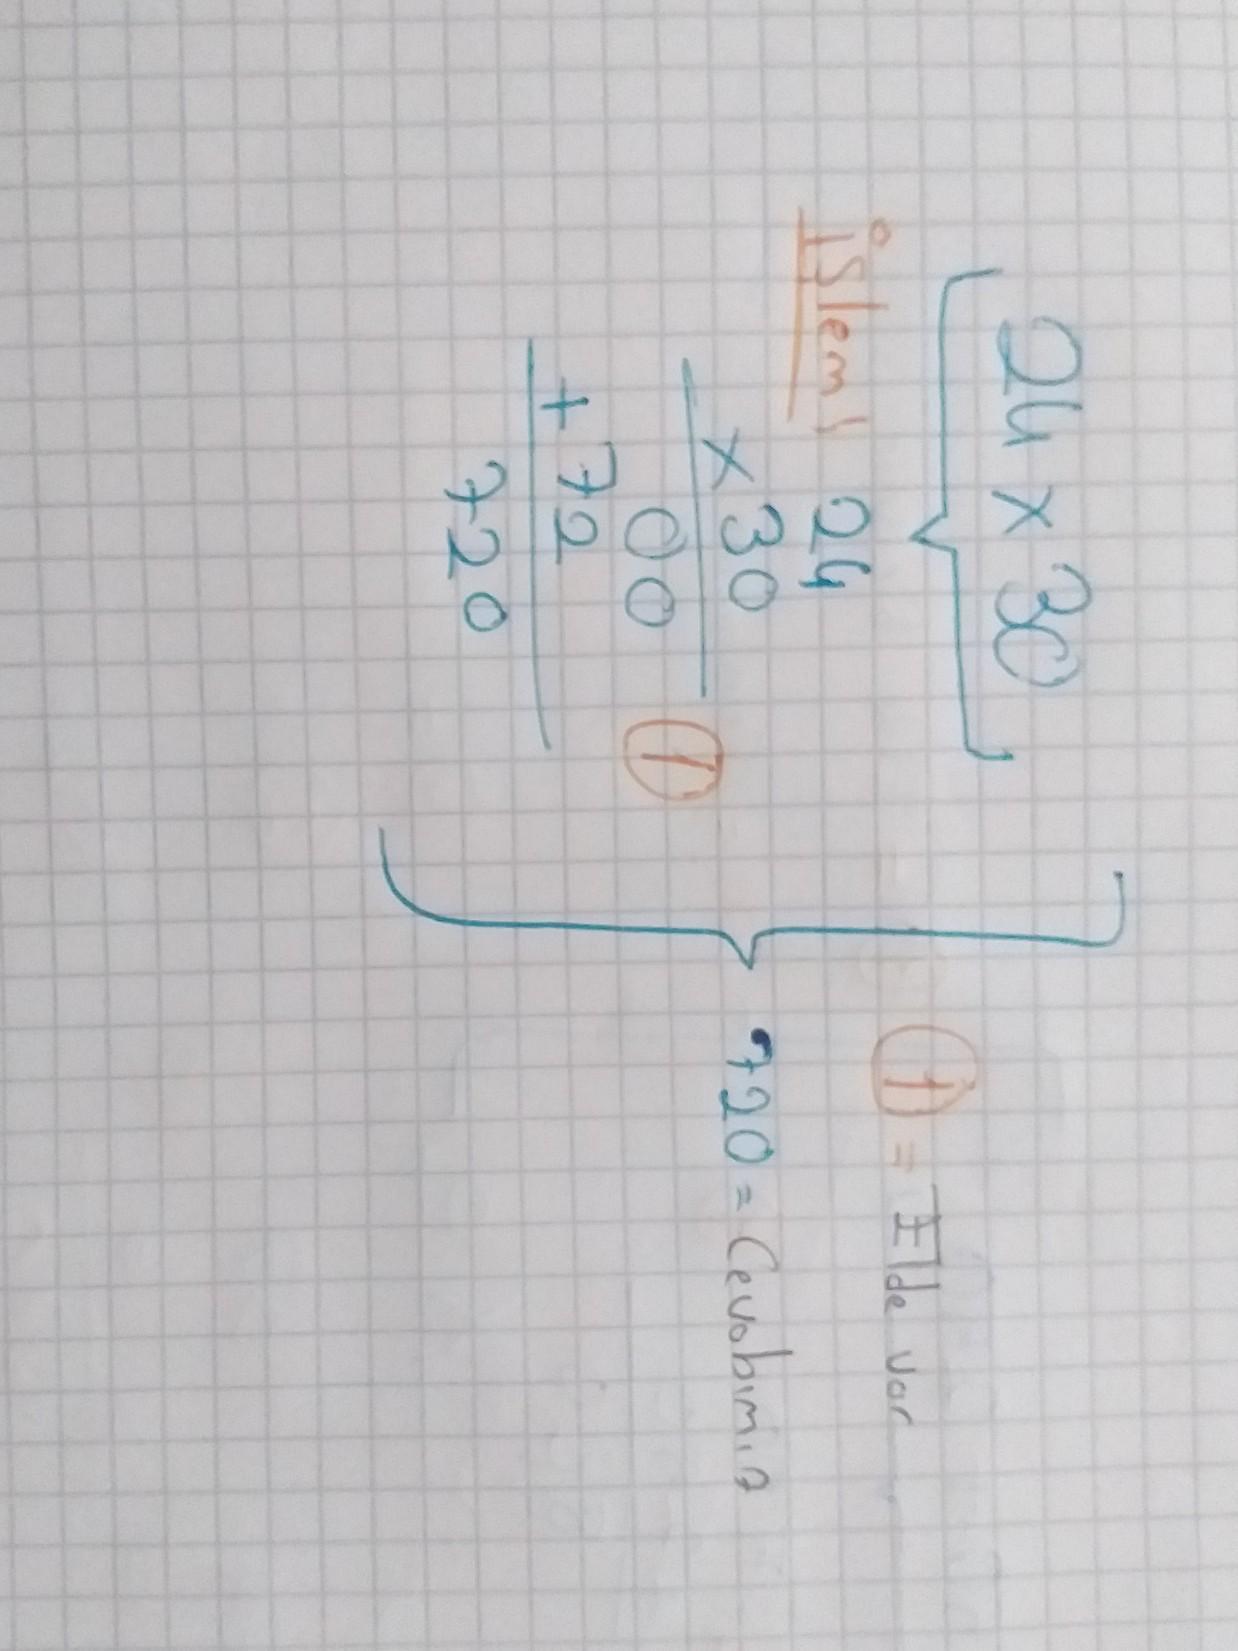 24 x 30
İşlem!
24
x 30
00 ①
+ 72
720
① = Elde var
720 = Cevabımız